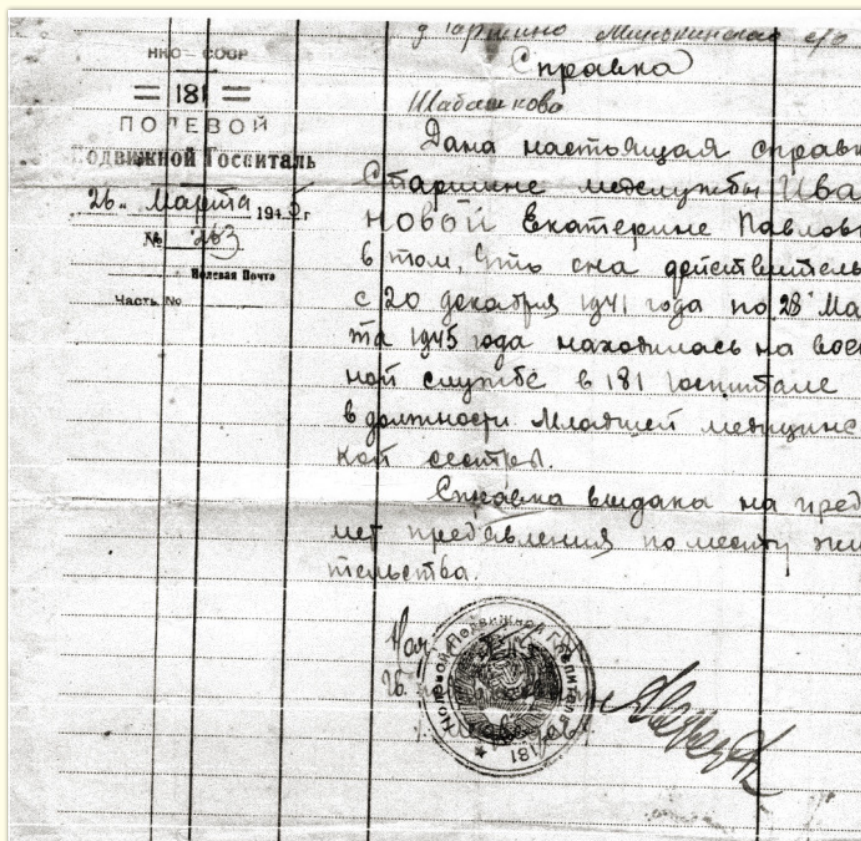 НКО – СССР
= 181 =
ПОЛЕВОЙ
ПОДВИЖНОЙ Госпиталь
26 Марта 1945 г
№ 263
Полевая Почта
Часть №
с/о
Справка
Шабашково
Дана настоящая справк
Старшине медслужбы Ива
новой Екатерине Павлов
в том, что она действитель
с 20 декабря 1941 года по 28 Ма
та 1945 года находилась на вое
ной службе в 181 госпитале
в должности Младшей медицинс
кой сестры.
Справка выдана на пред
мет представления по месту жи
тельства.
Нач
Полевой Подвижной Госпиталь
181